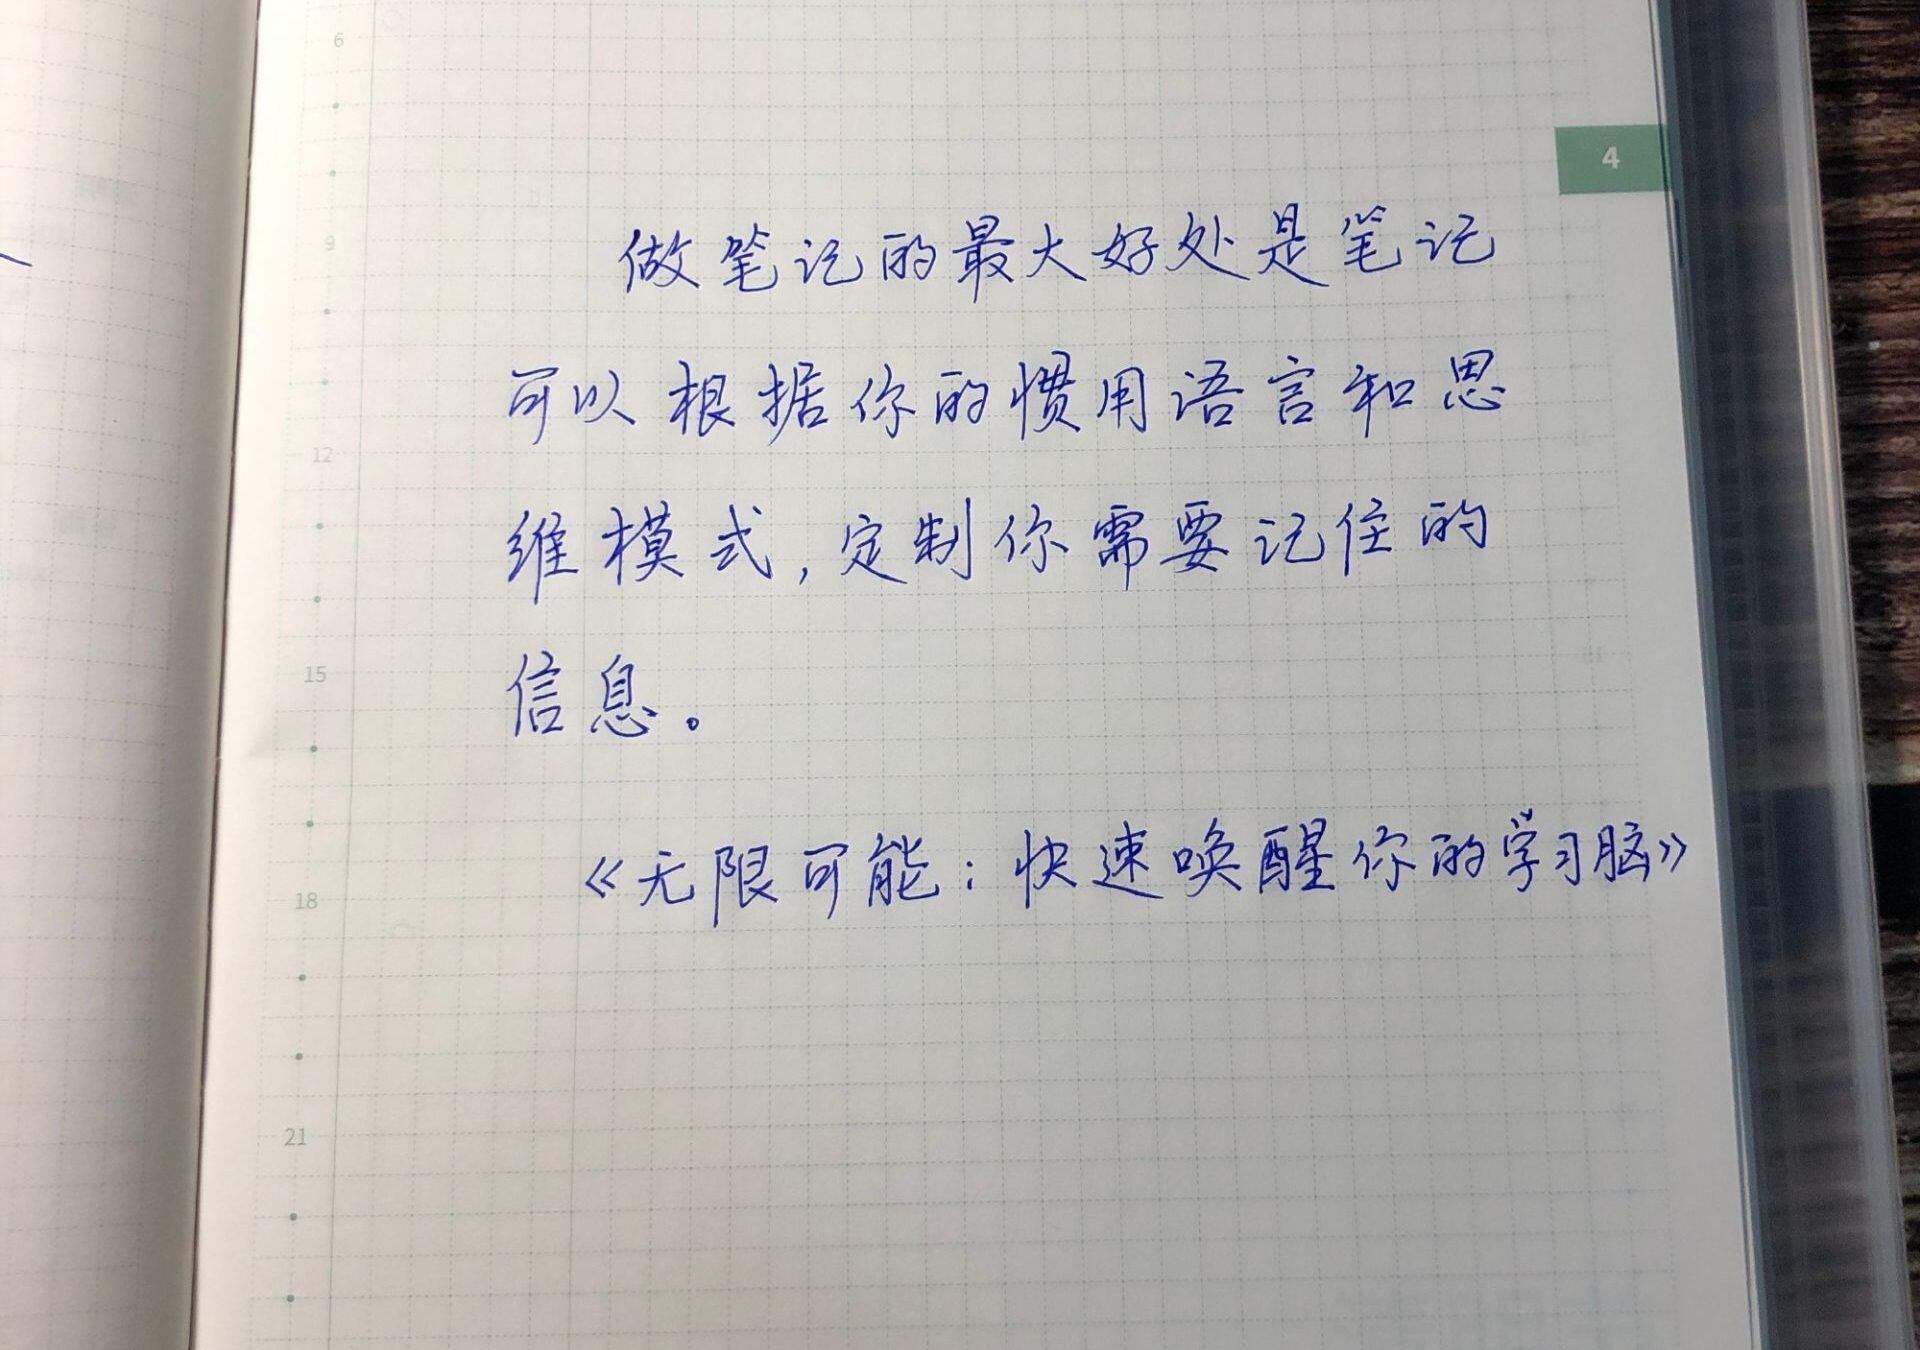 6
4
做笔记的最大好处是笔记
9
可以根据你的惯用语言和思
12
维模式，定制你需要记住的
15
信息。
《无限可能：快速唤醒你的学习脑》
18
21